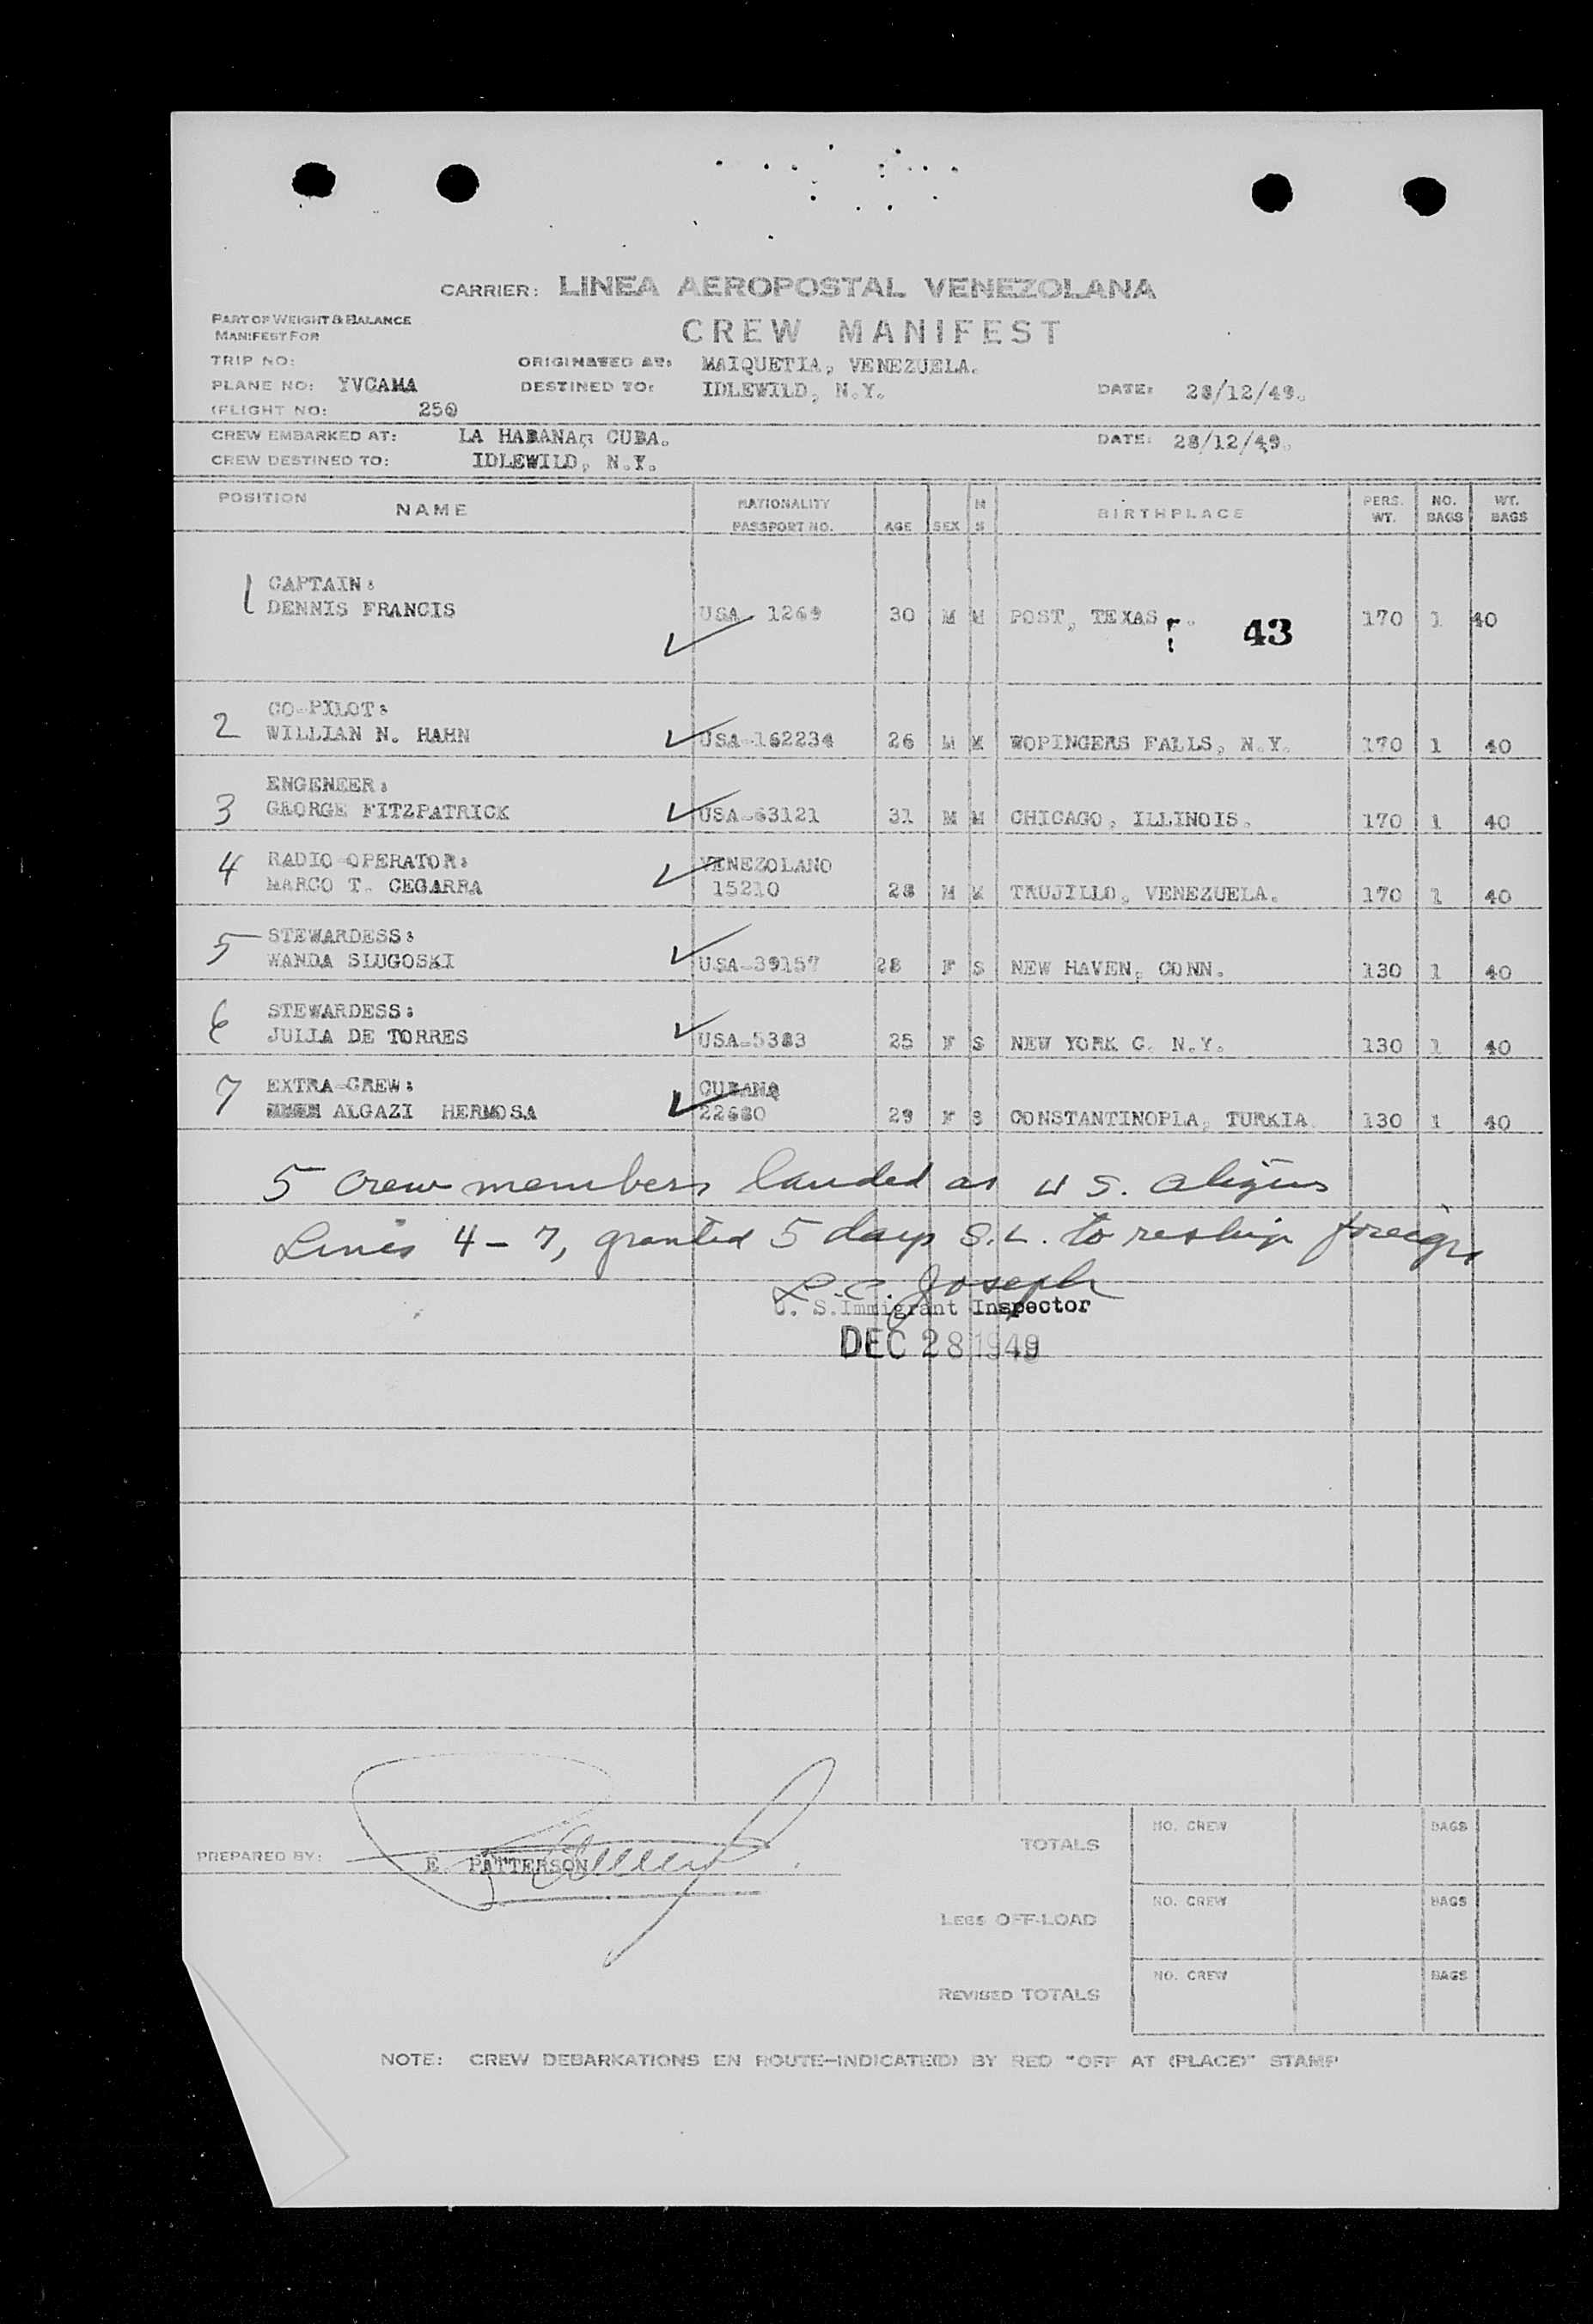 CARRIER: LINEA AEROPOSTAL VENEZOLANA
PART OF WEIGHT & BALANCE
MANIFEST FOR
CREW MANIFEST
TRIP NO:
ORIGINATED AT: MAIQUETIA, VENEZUELA.
PLANE NO: YVCAMA
DESTINED TO: IDLEWILD, N.Y.
DATE: 28/12/49.
(FLIGHT NO: 250
CREW EMBARKED AT: LA HABANA, CUBA.
DATE: 28/12/49.
CREW DESTINED TO: IDLEWILD, N.Y.
POSITION NAME NATIONALITY PASSPORT NO. AGE SEX M S BIRTHPLACE PERS. WT. NO. BAGS WT. BAGS
1 CAPTAIN:
DENNIS FRANCIS USA 1269 30 M M POST, TEXAS. 43 170 1 40
CO-PILOT:
2 WILLIAN N. HAHN USA-162234 26 M M WOPINGERS FALLS, N.Y. 170 1 40
ENGENEER:
3 GEORGE FITZPATRICK USA-63121 31 M M CHICAGO, ILLINOIS. 170 1 40
4 RADIO-OPERATOR: VENEZOLANO
MARCO T. CEGARRA 15210 28 M M TRUJILLO, VENEZUELA. 170 1 40
5 STEWARDESS:
WANDA SLUGOSKI USA-39157 28 F S NEW HAVEN, CONN. 130 1 40
6 STEWARDESS:
JULIA DE TORRES USA-5383 25 F S NEW YORK C. N.Y. 130 1 40
7 EXTRA-CREW: CUBANA
ALGAZI HERMOSA 22680 29 F S CONSTANTINOPLA, TURKIA 130 1 40
5 crew members landed as U S. citizens
Lines 4 - 7, granted 5 days S.L. to reship foreign
L. C. Joseph
U. S. Immigrant Inspector
DEC 28 1949
PREPARED BY: E. PATTERSON
TOTALS NO. CREW BAGS
LESS OFF-LOAD NO. CREW BAGS
REVISED TOTALS NO. CREW BAGS
NOTE: CREW DEBARKATIONS EN ROUTE-INDICATE(D) BY RED "OFF AT (PLACE)" STAMP